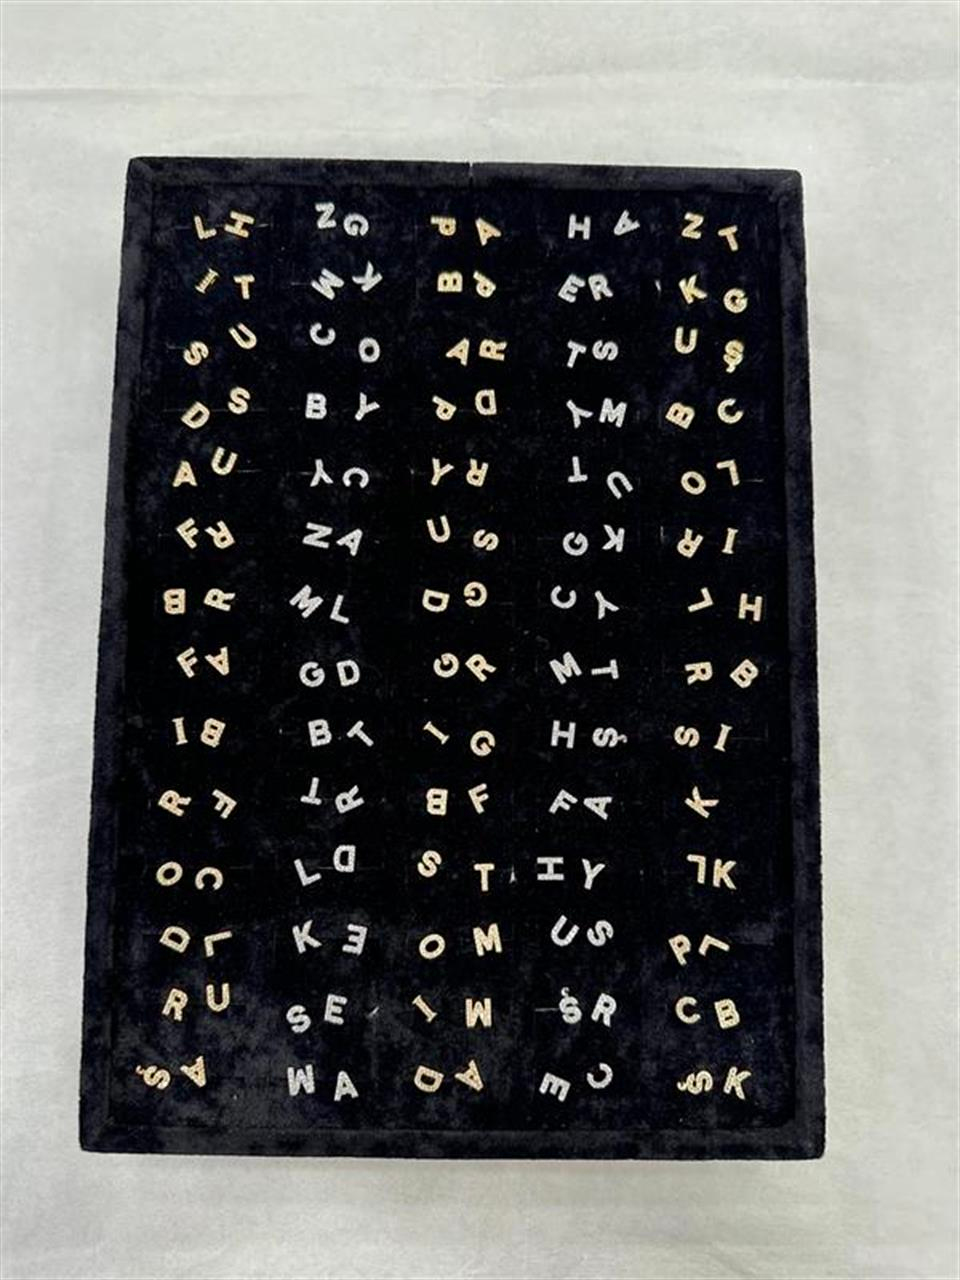 L H N G P A H A Z T
I T M K B P E R K G
S U C O A R T S U Ş
D S B Y P D Y M B C
A U Y C Y R T U O L
F R Z A U S G K R I
B R M L D G C Y L H
F A G D G R M T R B
I B B T I G H Ş S I
R F T R B F F A K
O C L D S T H Y L K
D L K E O M U S P L
R U S E I M Ş R C B
Ş A M A D A E C Ş K